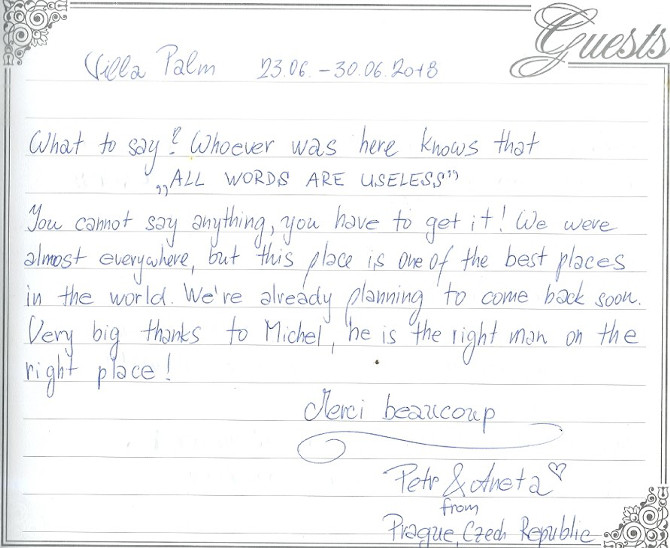 Guests
Villa Palm 23.06. - 30.06.2018
What to say? Whoever was here knows that
„ALL WORDS ARE USELESS”
You cannot say anything, you have to get it! We were
almost everywhere, but this place is one of the best places
in the world. We're already planning to come back soon.
Very big thanks to Michel, he is the right man on the
right place!
Merci beaucoup
Petr & Aneta ♡
from
Prague, Czech Republic